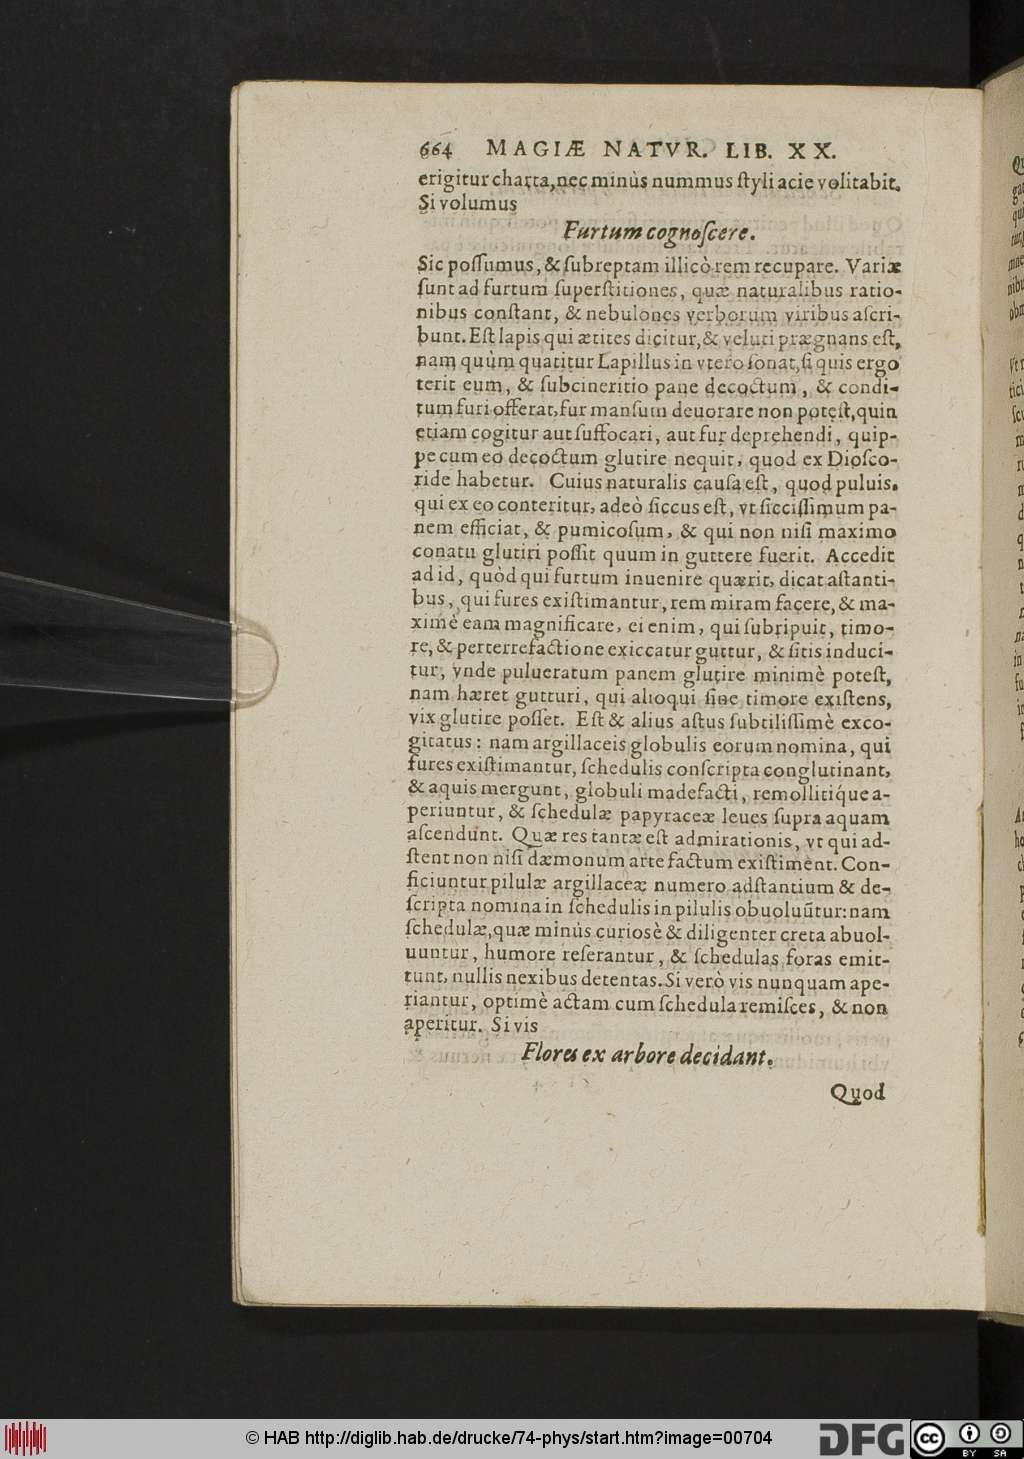 664 MAGIÆ NATVR. LIB. XX.
erigitur charta, nec minùs nummus ſtyli acie volitabit.
Si volumus
Furtum cognoſcere.
Sic poſſumus, & ſubreptam illicò rem recupare. Variæ
ſunt ad furtum ſuperſtitiones, quæ naturalibus ratio-
nibus conſtant, & nebulones verborum viribus aſcri-
bunt. Eſt lapis qui ætites dicitur, & veluti prægnans eſt,
nam quùm quatitur Lapillus in vtero ſonat, ſi quis ergo
terit eum, & ſubcineritio pane decoctum, & condi-
tum furi offerat, fur manſum deuorare non poteſt, quin
etiam cogitur aut ſuffocari, aut fur deprehendi, quip-
pe cum eo decoctum glutire nequit, quod ex Dioſco-
ride habetur. Cuius naturalis cauſa eſt, quod puluis.
qui ex eo conteritur, adeò ſiccus eſt, vt ſicciſſimum pa-
nem efficiat, & pumicoſum, & qui non niſi maximo
conatu glutiri poſſit quum in guttere fuerit. Accedit
ad id, quòd qui furtum inuenire quærit, dicat aſtanti-
bus, qui fures exiſtimantur, rem miram facere, & ma-
ximè eam magnificare, ei enim, qui ſubripuit, timo-
re, & perterrefactione exiccatur guttur, & ſitis induci-
tur, vnde pulueratum panem glutire minimè poteſt,
nam hæret gutturi, qui alioqui ſine timore exiſtens,
vix glutire poſſet. Eſt & alius aſtus ſubtiliſſimè exco-
gitatus: nam argillaceis globulis eorum nomina, qui
fures exiſtimantur, ſchedulis conſcripta conglutinant,
& aquis mergunt, globuli madefacti, remollitiq́ue a-
periuntur, & ſchedulæ papyraceæ leues ſupra aquam
aſcendunt. Quæ res tantæ eſt admirationis, vt qui ad-
ſtent non niſi dæmonum arte factum exiſtimènt. Con-
ficiuntur pilulæ argillaceæ numero adſtantium & de-
ſcripta nomina in ſchedulis in pilulis obuoluũtur: nam
ſchedulæ, quæ minùs curiosè & diligenter creta abuol-
uuntur, humore reſerantur, & ſchedulas foras emit-
tunt, nullis nexibus detentas. Si verò vis nunquam ape-
riantur, optimè actam cum ſchedula remiſces, & non
aperitur. Si vis
Flores ex arbore decidant.
Quod
© HAB http://diglib.hab.de/drucke/74-phys/start.htm?image=00704
DFG
cc BY SA